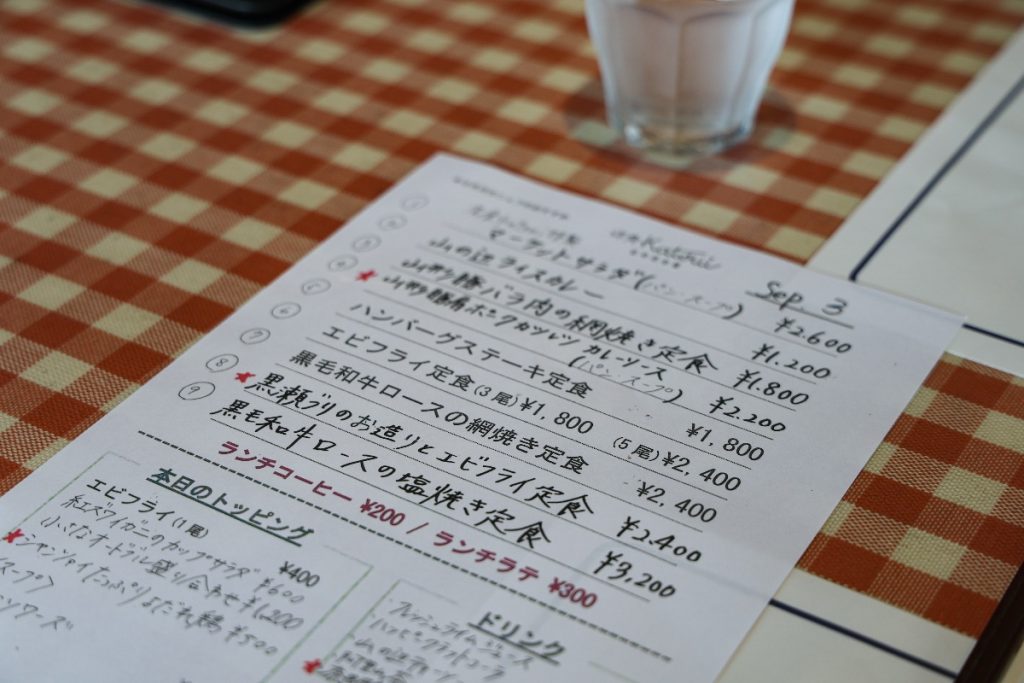 Katorii
Sep. 3
① マーケットサラダ(パン スープ) ¥2,600
② 山の辺ライスカレー ¥1,200
③ 豚バラ肉の網焼き定食 ¥1,800
④ ★ 豚肩ポークカツレツ カレーソース (パン スープ) ¥2,200
⑤ ハンバーグステーキ定食 ¥1,800
⑥ エビフライ定食(3尾)¥1,800 (5尾)¥2,400
⑦ 黒毛和牛ロースの網焼き定食 ¥2,400
⑧ ★ 黒瀬ブリのお造りとエビフライ定食 ¥2,400
⑨ 黒毛和牛ロースの塩焼き定食 ¥3,200
ランチコーヒー ¥200 / ランチラテ ¥300
本日のトッピング
エビフライ(1尾) ¥400
紅ズワイガニのカップサラダ ¥600
小さなオードブル盛り合わせ ¥1,200
★シャンツァイたっぷりよだれ鶏 ¥500
スープ)
ドリンク
フレッシュライムジュース